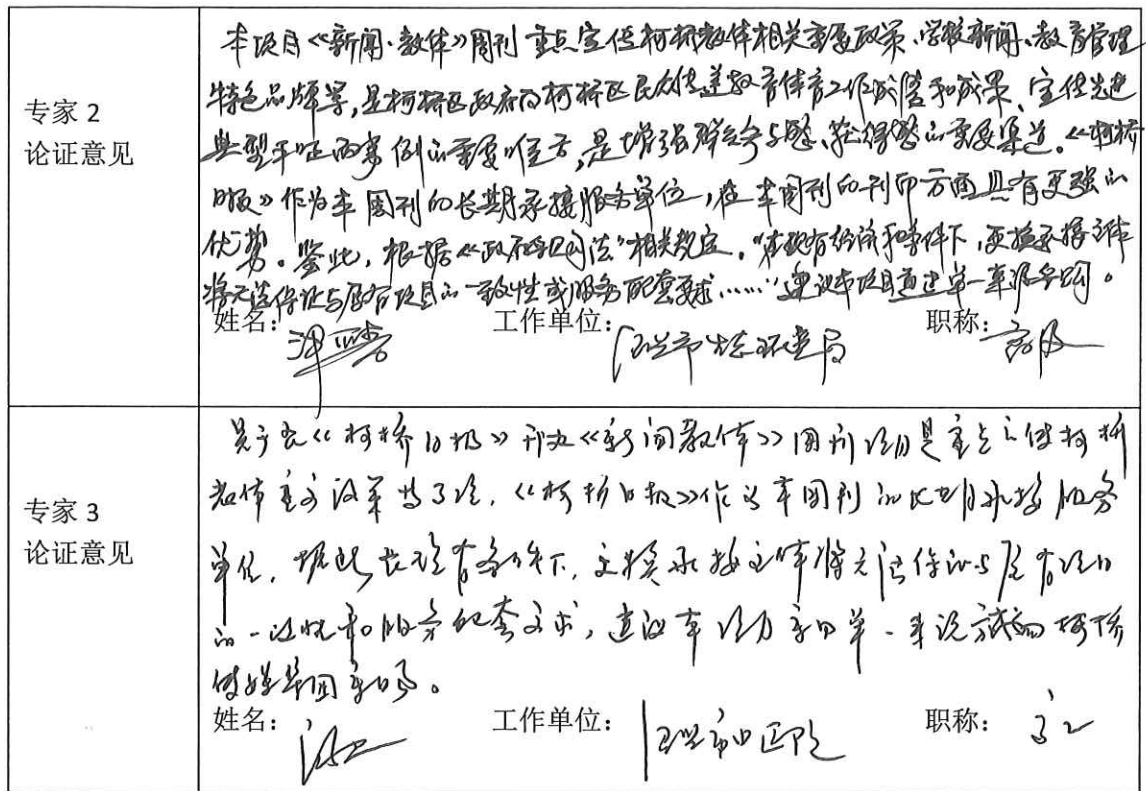 专家 2
论证意见
本项目《新闻·教体》周刊重点宣传柯桥教体相关重要政策、学校新闻、教育管理
特色品牌等,是柯桥区政府向柯桥区民众传递教育体育工作成绩和成果、宣传先进
典型 案例的重要 ,是增强群众参与感、获得感的重要渠道。《柯桥
日报》作为本周刊的长期承接服务单位,在本周刊的刊印方面具有更强的
优势。鉴此,根据《政府采购法》相关规定,“在现有 条件下,更换承接主体
将无法保证与原有项目的一致性或服务配套要求……”建议本项目通过单一来源采购。
姓名:
工作单位: 市 局
职称:高级
专家 3
论证意见
《柯桥日报》刊 《新闻教体》周刊项目是重点宣传柯桥
教体重要政策 ,《柯桥日报》作为本周刊的长期承接服务
单位, 现有条件下,更换承接主体将无法保证与原有项目
的一致性和服务配套要求,建议本项目采用单一来源方式向柯桥
传媒集团采购。
姓名:
工作单位:
职称: